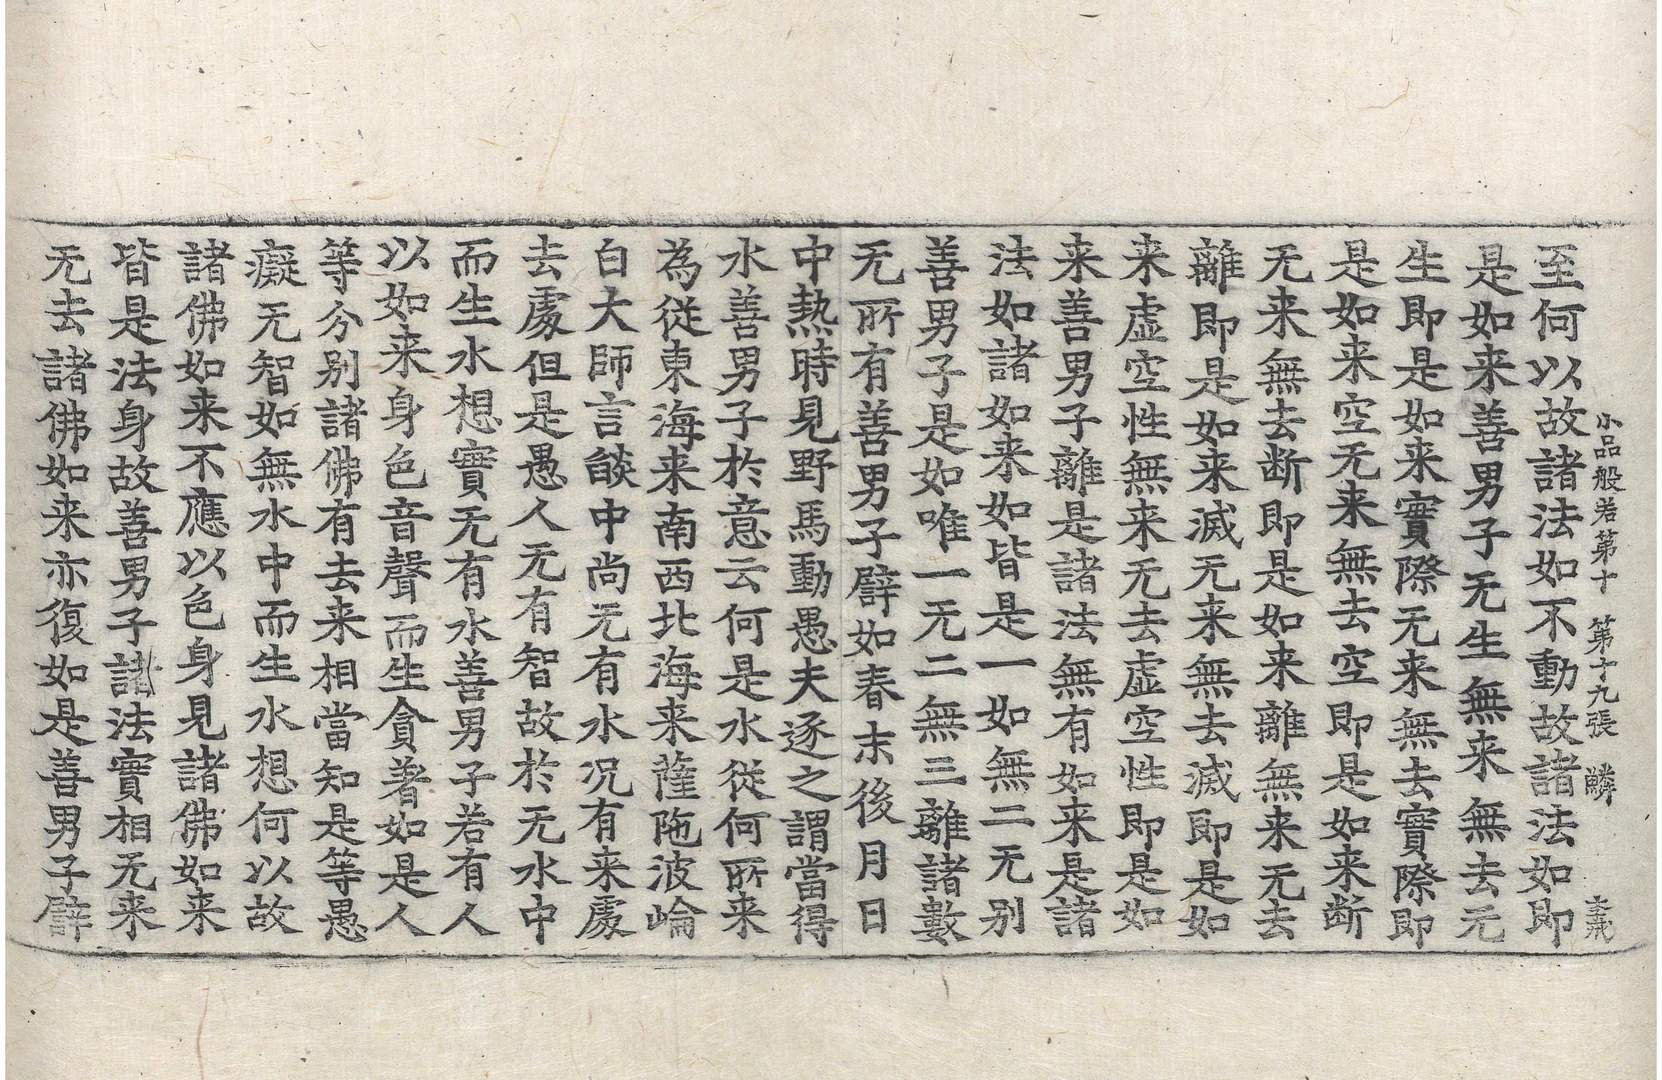 小品般若第十　第十九張　鱗
至何以故諸法如不動故諸法如即
是如来善男子无生無来無去无
生即是如来實際无来無去實際即
是如来空无来無去空即是如来断
无来無去断即是如来離無来无去
離即是如来滅无来無去滅即是如
来虛空性無来无去虛空性即是如
来善男子離是諸法無有如来是諸
法如諸如来如皆是一如無二无别
善男子是如唯一无二無三離諸數
无所有善男子譬如春末後月日
中熱時見野馬動愚夫逐之謂當得
水善男子於意云何是水従何所来
為従東海来南西北海来薩陁波崘
白大師言餤中尚无有水况有来處
去處但是愚人无有智故於无水中
而生水想實无有水善男子若有人
以如来身色音聲而生貪著如是人
等分别諸佛有去来相當知是等愚
癡无智如無水中而生水想何以故
諸佛如来不應以色身見諸佛如来
皆是法身故善男子諸法實相无来
无去諸佛如来亦復如是善男子譬